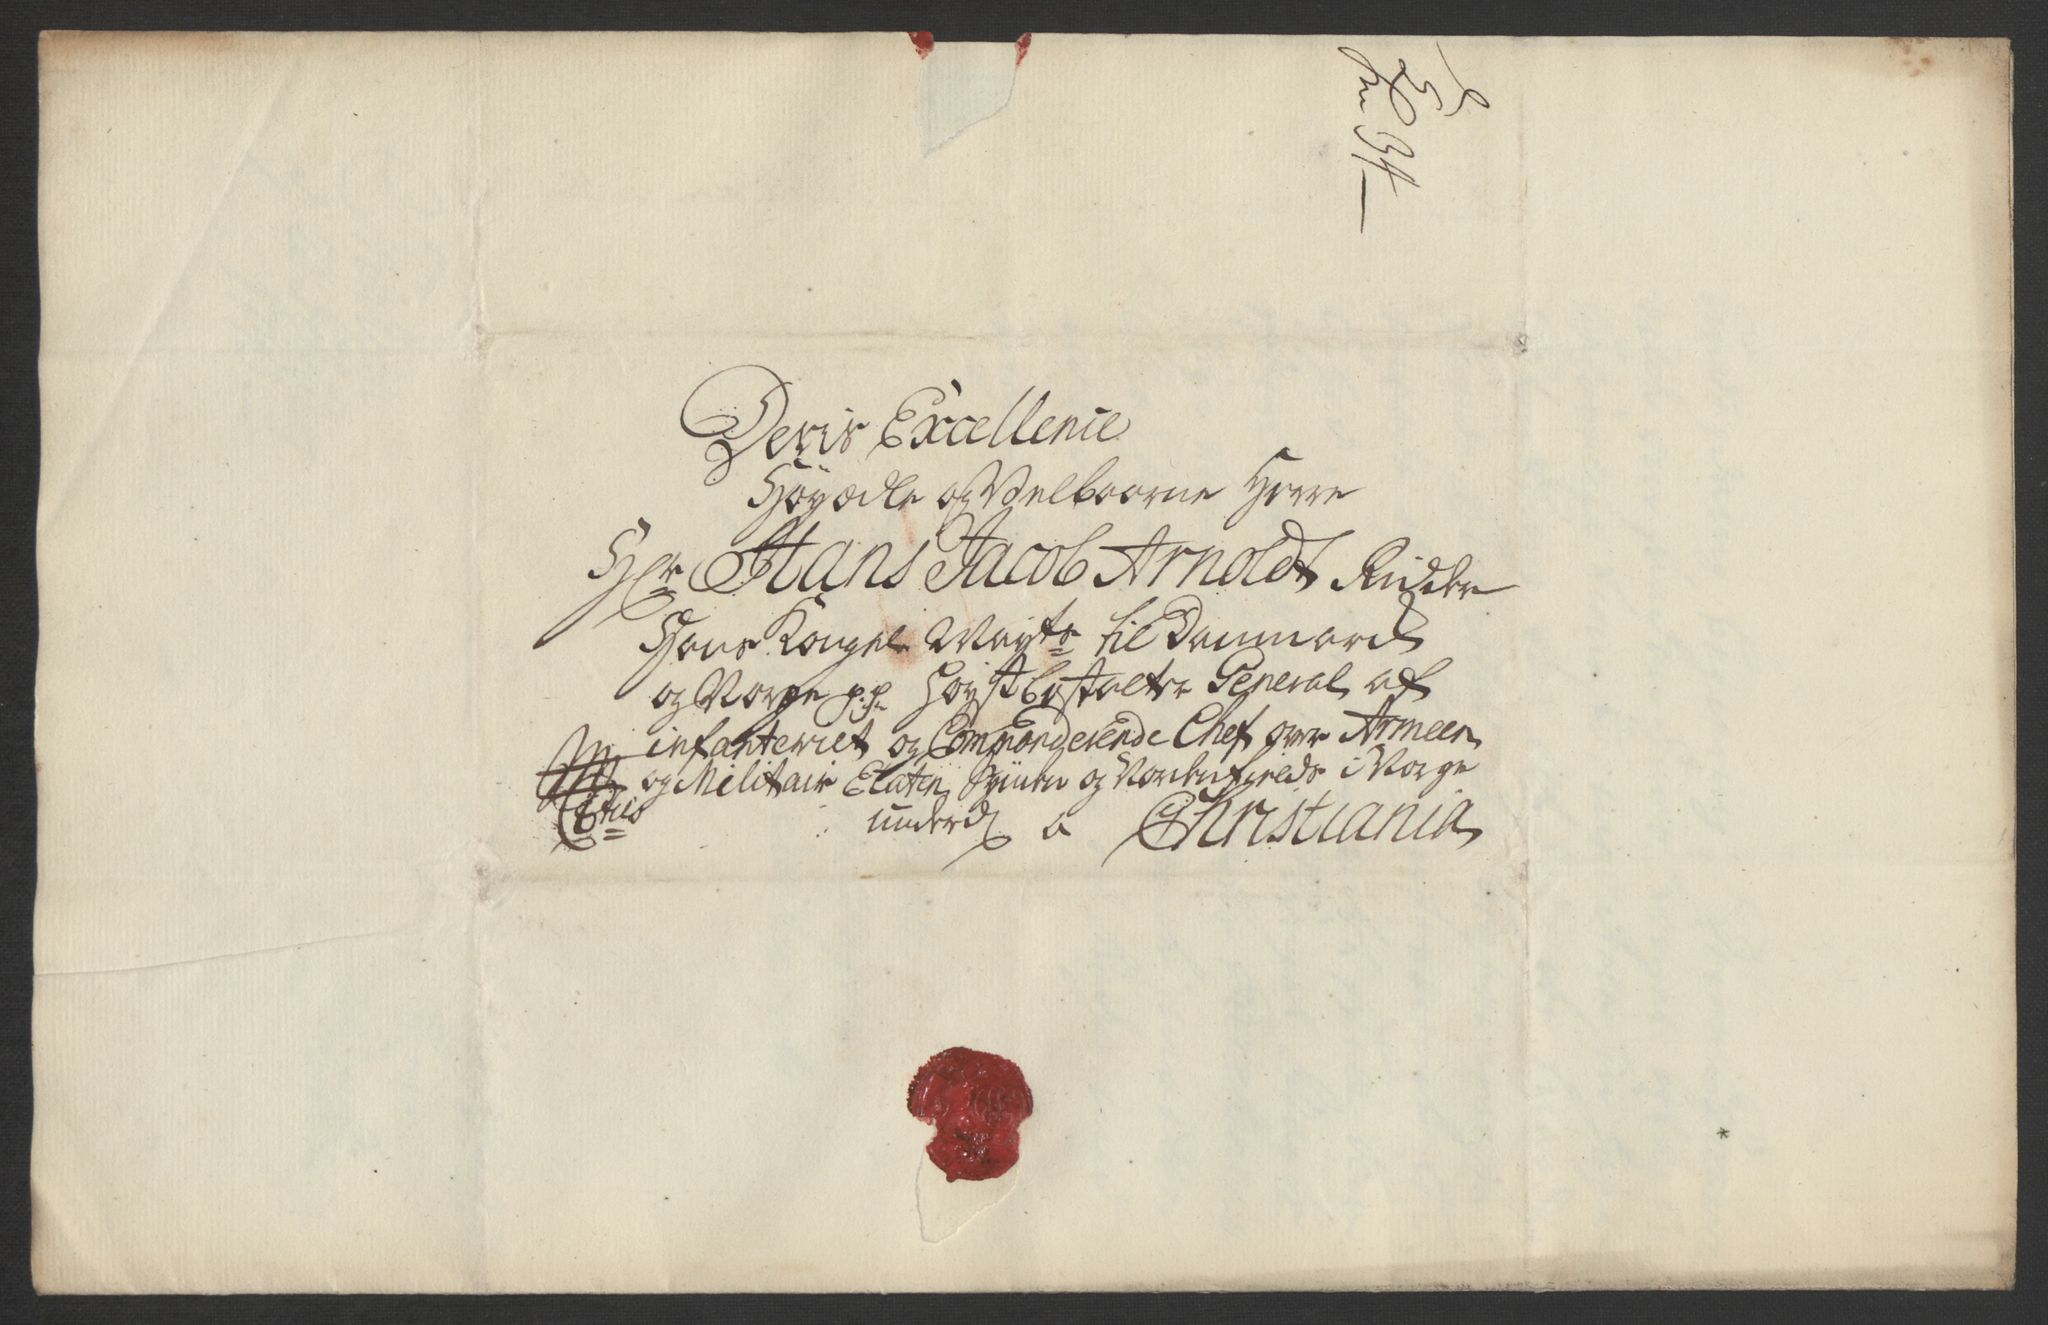 Deris Excellence
Höyædle og Velbaarne Herre
Hr Hans Jacob Arnoldt Ridder
Hans Kongel Mayts til Danmarck
og Norge p.p. Høystbestalter General af
infanteriet og Commanderende Chef over Armeen
og Militair Etaten Synden og Nordenfields i Norge
underd a Christiania